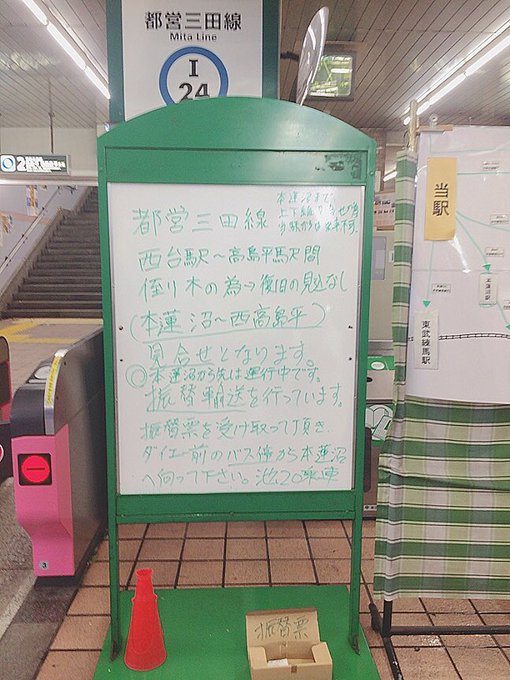 都営三田線
Mita Line
I
24
2
当駅
本蓮沼駅
東武練馬駅
本蓮沼まで
上下線
都営三田線
西台駅〜高島平駅間
倒り木の為→復旧の見込なし
(本蓮沼〜西高島平)
見合せとなります。
◎本蓮沼から先は運行中です。
振替輸送を行っています。
振替票を受け取って頂き、
ダイエー前のバス停から本蓮沼
へ向って下さい。池20乗車
振替票
3